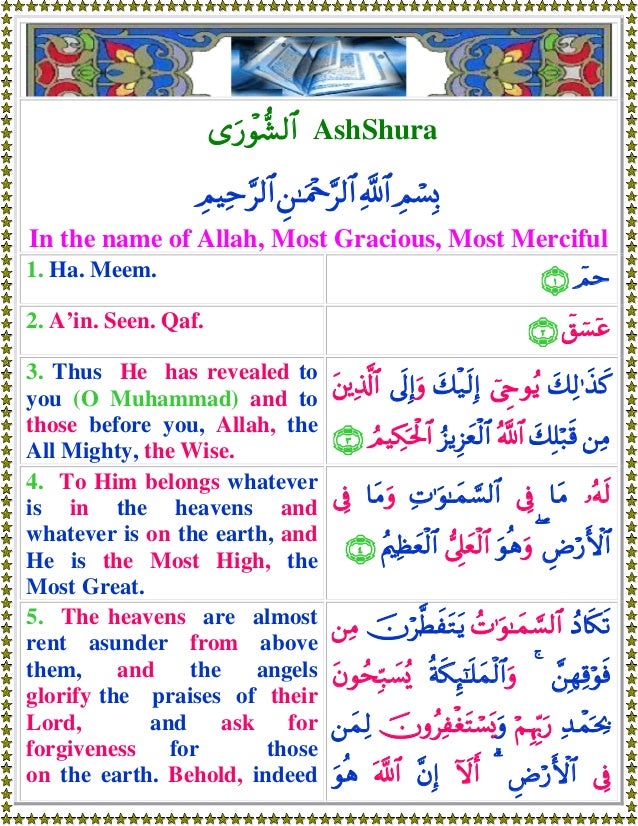 ٱلشُّورَىٰ AshShura
بِسْمِ ٱللَّهِ ٱلرَّحْمَـٰنِ ٱلرَّحِيمِ
In the name of Allah, Most Gracious, Most Merciful
1. Ha. Meem.
حمٓ ﴿١﴾
2. A’in. Seen. Qaf.
عٓسٓقٓ ﴿٢﴾
3. Thus He has revealed to
you (O Muhammad) and to
those before you, Allah, the
All Mighty, the Wise.
كَذَٰلِكَ يُوحِىٓ إِلَيْكَ وَإِلَى ٱلَّذِينَ
مِن قَبْلِكَ ٱللَّهُ ٱلْعَزِيزُ ٱلْحَكِيمُ ﴿٣﴾
4. To Him belongs whatever
is in the heavens and
whatever is on the earth, and
He is the Most High, the
Most Great.
لَهُۥ مَا فِى ٱلسَّمَـٰوَٰتِ وَمَا فِى
ٱلْأَرْضِ ۖ وَهُوَ ٱلْعَلِىُّ ٱلْعَظِيمُ ﴿٤﴾
5. The heavens are almost
rent asunder from above
them, and the angels
glorify the praises of their
Lord, and ask for
forgiveness for those
on the earth. Behold, indeed
تَكَادُ ٱلسَّمَـٰوَٰتُ يَتَفَطَّرْنَ مِن
فَوْقِهِنَّ ۚ وَٱلْمَلَـٰٓئِكَةُ يُسَبِّحُونَ
بِحَمْدِ رَبِّهِمْ وَيَسْتَغْفِرُونَ لِمَن
فِى ٱلْأَرْضِ ۗ أَلَآ إِنَّ ٱللَّهَ هُوَ